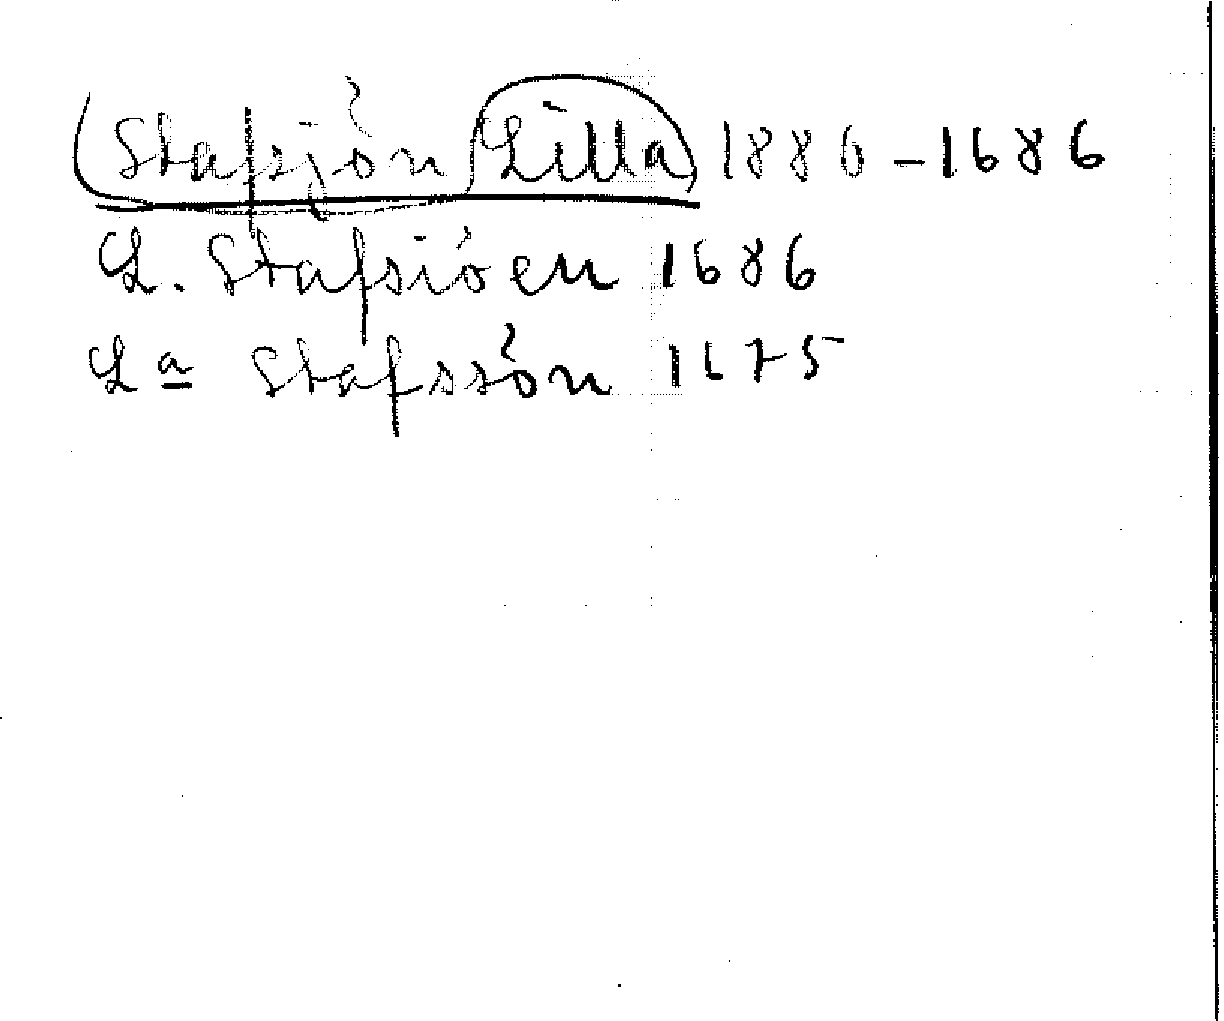 Stafsjön Lilla 1886 - 1686
L. Stafsiöen 1686
La Stafssön 1675